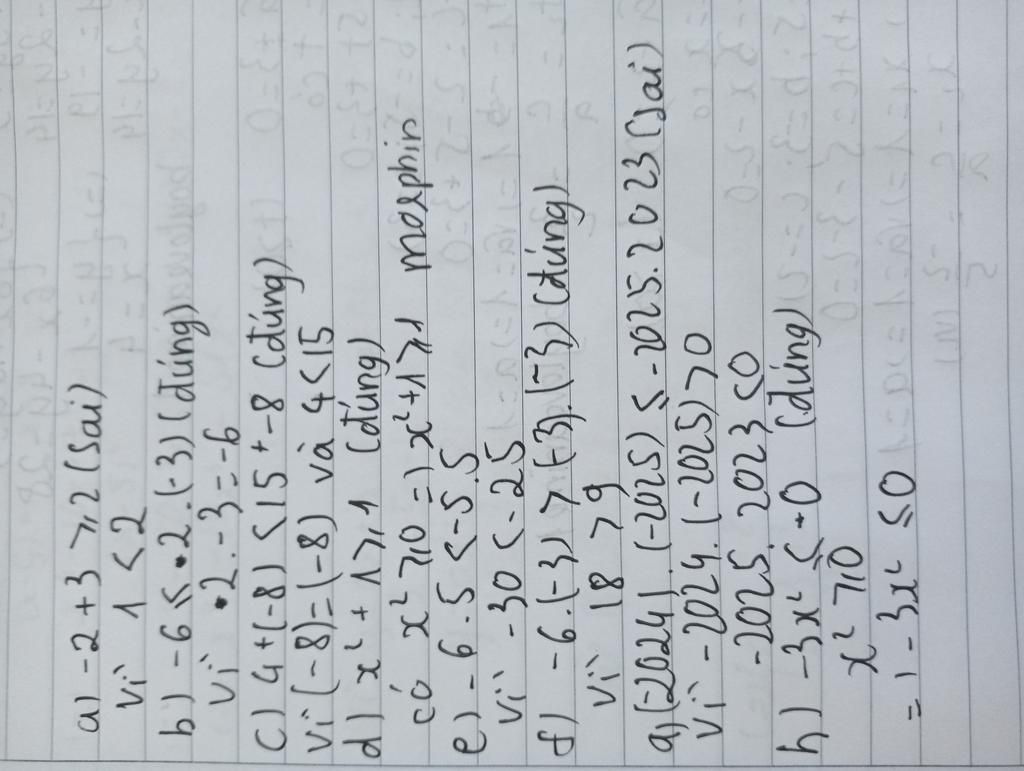 a) -2+3 ≥ 2 (sai)
Vì 1 < 2
b) -6 ≤ 2.(-3) (đúng)
Vì 2.-3=-6
c) 4+(-8) < 15+-8 (đúng)
Vì (-8)=(-8) và 4<15
d) x²+1 ≥ 1 (đúng)
có x² ≥ 0 => x²+1 ≥ 1 morphin
e) -6.5 < -5.5
Vì -30 < -25
f) -6.(-3) > (-3).(-3) (đúng)
Vì 18 > 9
g) (-2024).(-2025) ≤ -2025.2023 (sai)
Vì -2024.(-2025) > 0
-2025.2023 ≤ 0
h) -3x² ≤ 0 (đúng)
x² ≥ 0
=) -3x² ≤ 0